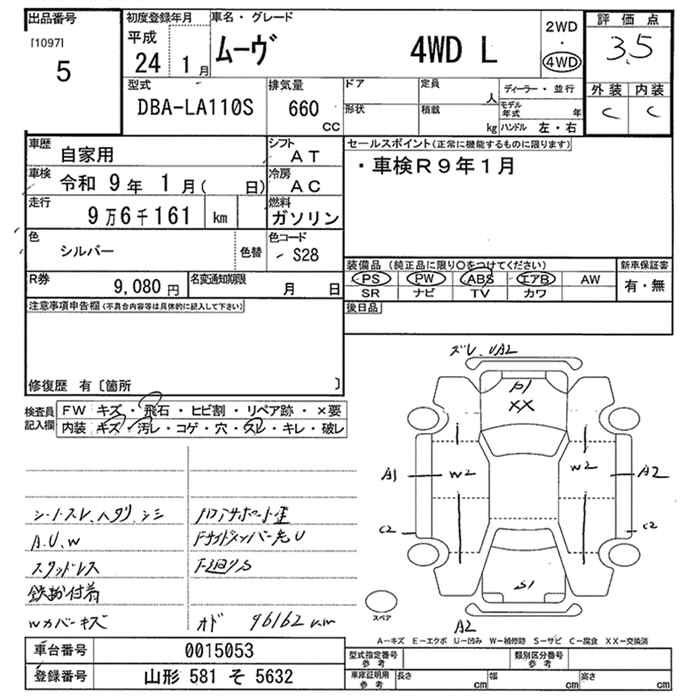 出品番号 初度登録年月 車名・グレード 2WD 評価点
[1097] 平成 ムーヴ 4WD L ・ 3.5
5 24 1月 4WD
型式 排気量 ドア 定員 人 ディーラー・並行 外装 内装
DBA-LA110S 660 cc 形状 積載 kg モデル年式 年 C C
ハンドル 左・右
車歴 自家用 シフト AT セールスポイント(正常に機能するものに限ります)
車検 令和 9年 1月( 日) 冷房 AC ・車検R9年1月
走行 9万6千161 km 燃料 ガソリン
色 シルバー 色替 色コード S28
装備品 (純正品に限り○をつけてください) 新車保証書
R券 9,080円 名変通知期限 月 日 PS PW ABS エアB AW 有・無
SR ナビ TV カワ
注意事項申告欄(不具合内容等は具体的に記入して下さい) 後日品
修復歴 有〔箇所 〕
検査員記入欄 FW キズ・飛石・ヒビ割・リペア跡・×要
内装 キズ・汚レ・コゲ・穴・スレ・キレ・破レ
ズレ、UA2
P1
XX
A1 W2 W2 A2
C2 C2
S1
A2
シートスレ、ヘタリ、シミ
A.U.W F サイドメンバー先U
スタッドレス
鉄粉付着
Wカバーキズ オド 96162km
スペア
A-キズ E-エクボ U-凹み W-補修跡 S-サビ C-腐食 XX-交換済
車台番号 0015053 型式指定番号 参考 類別区分番号 参考
登録番号 山形 581 そ 5632 車庫証明用 参考 長さ cm 幅 cm 高さ cm